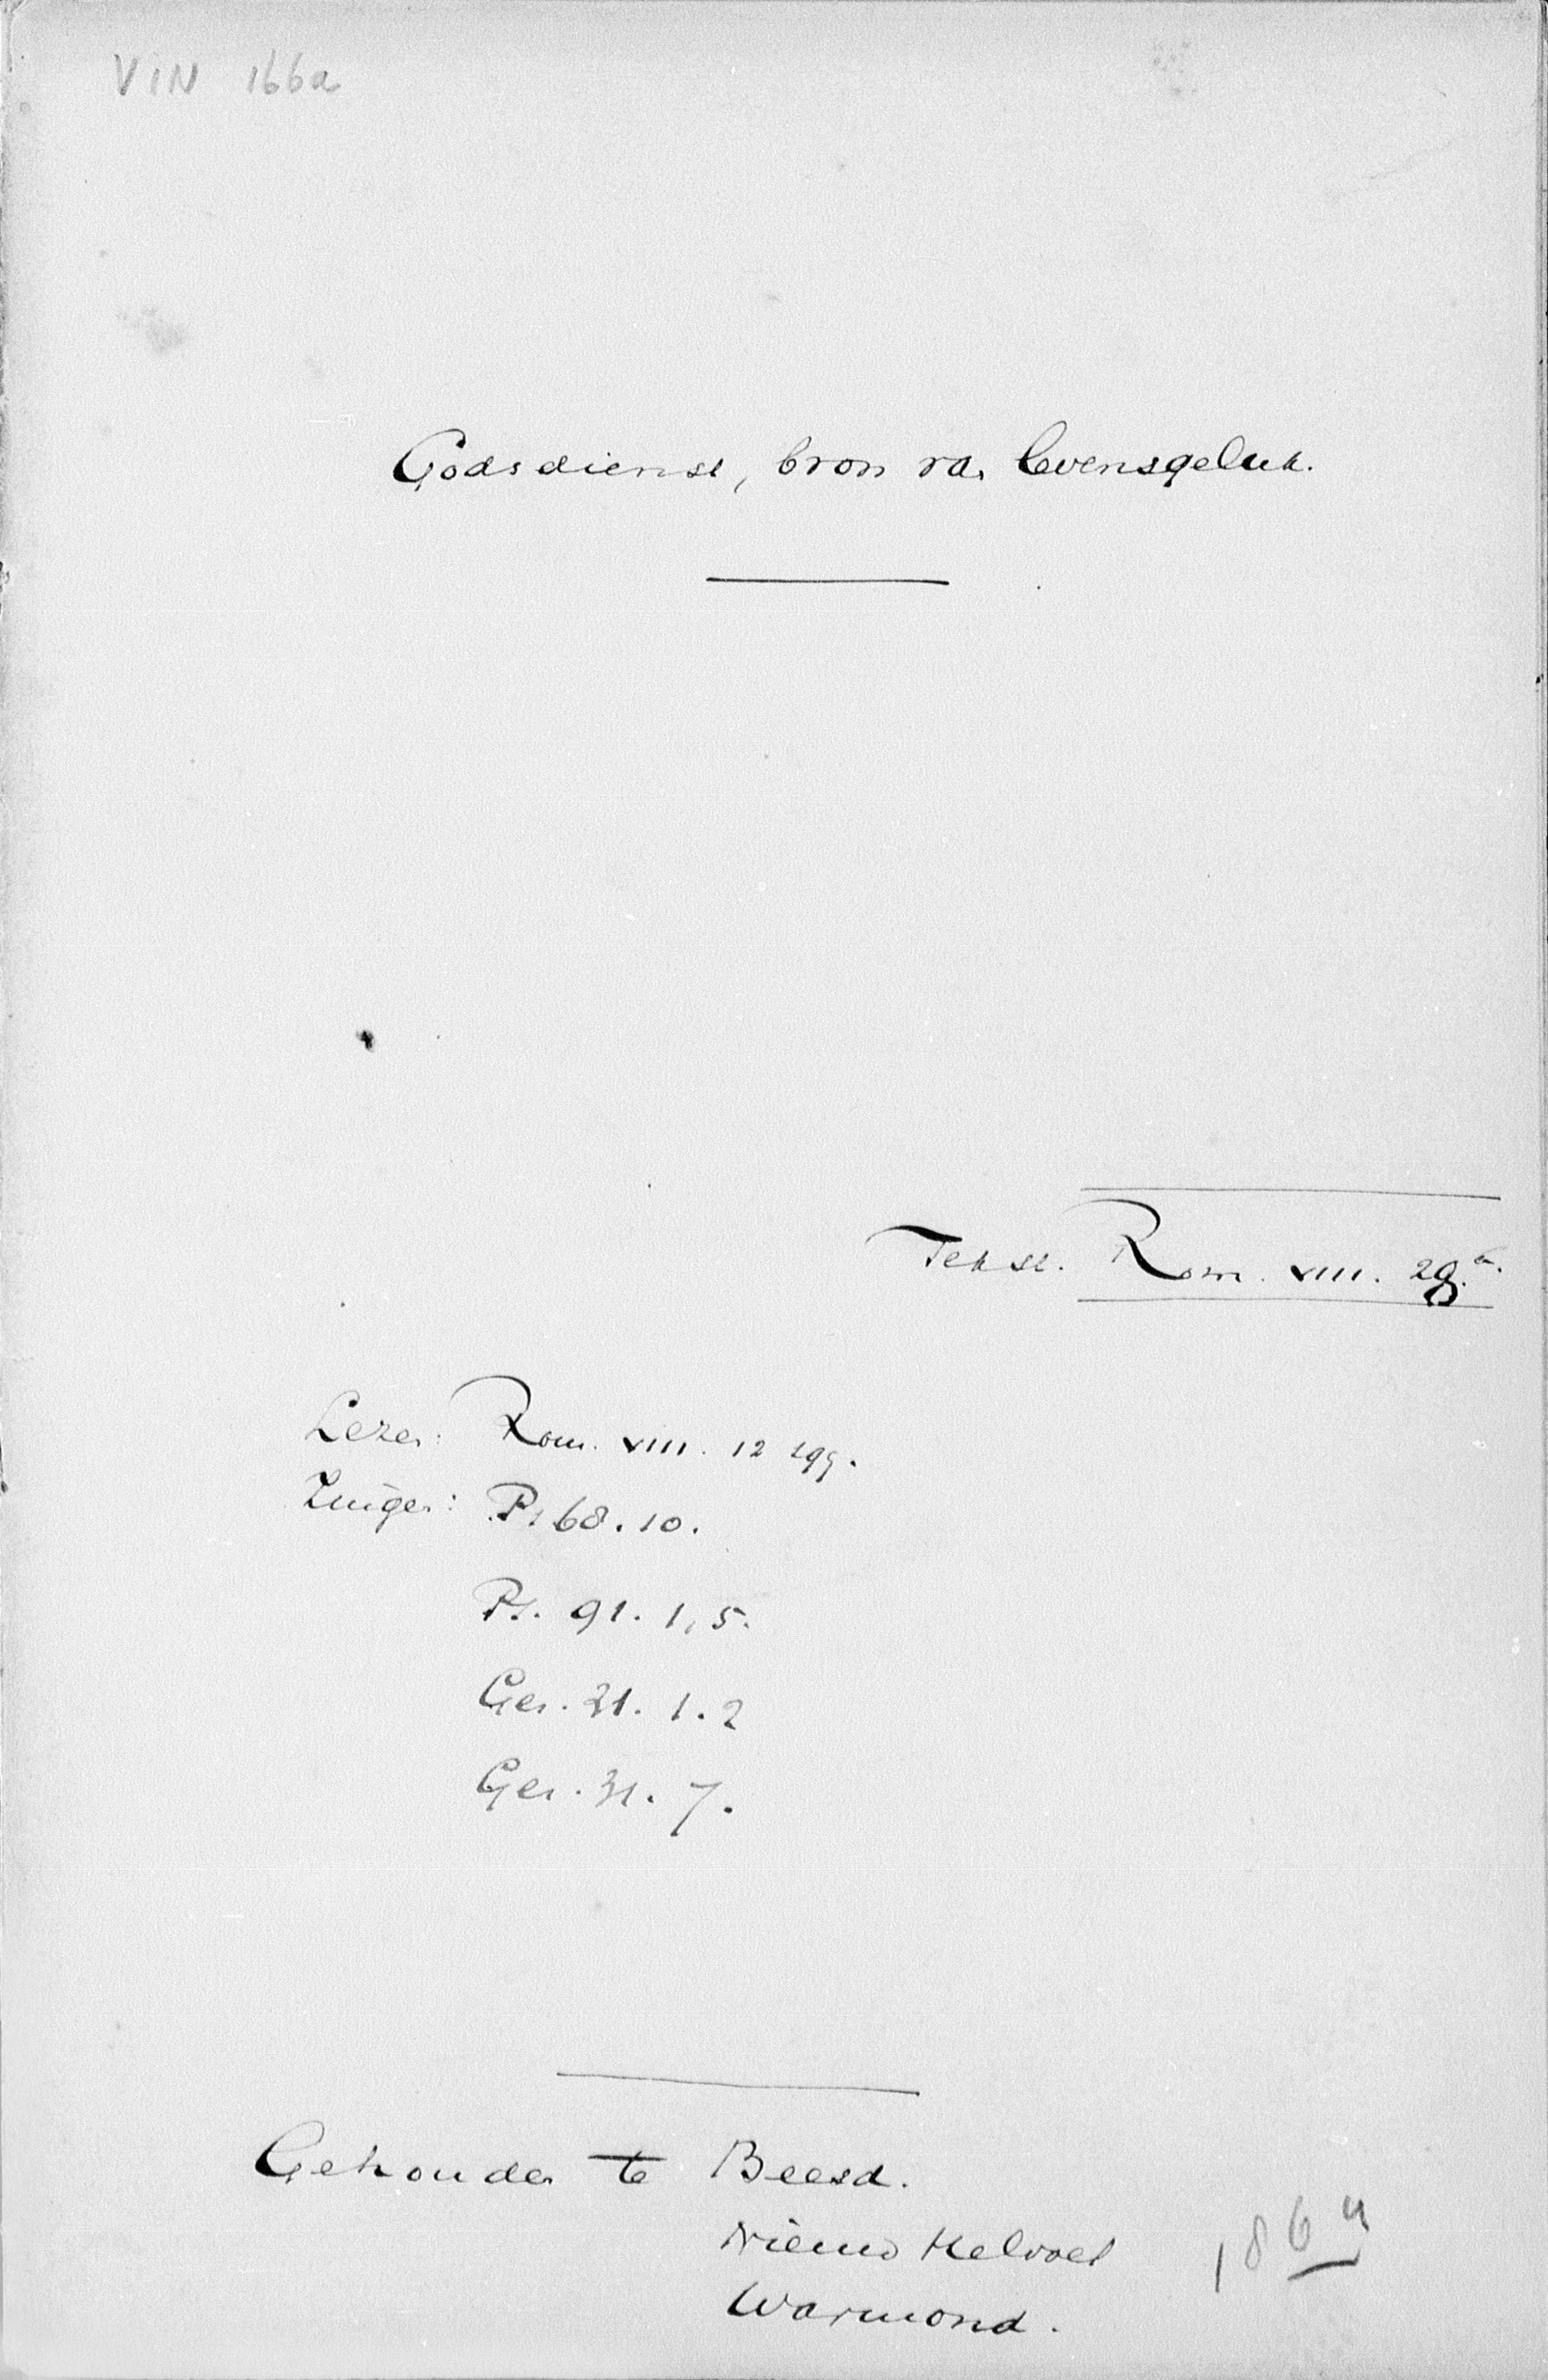 VIN 166a
Godsdienst, bron van levensgeluk.
Tekst. Rom. VIII. 28.a.
Lezen: Rom. VIII. 12 sqq.
Zingen: Ps 68. 10.
Ps. 91. 1, 5.
Gez. 21. 1. 2
Gez. 31. 7.
Gehouden te Beesd.
Nieuw Helvoet
Warmond.